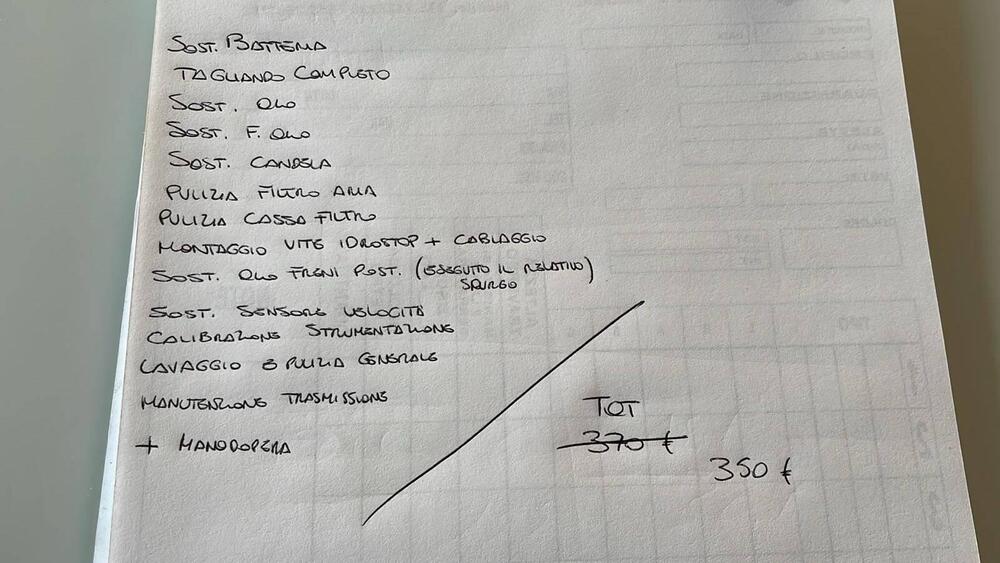 SOST. BATTERIA
TAGLIANDO COMPLETO
SOST. OLIO
SOST. F. OLIO
SOST. CANDELA
PULIZIA FILTRO ARIA
PULIZIA CASSA FILTRO
MONTAGGIO VITE IDROSTOP + CABLAGGIO
SOST. OLIO FRENI POST. (ESEGUITO IL RELATIVO
SPURGO)
SOST. SENSORE VELOCITÀ
CALIBRAZIONE STRUMENTAZIONE
LAVAGGIO E PULIZIA GENERALE
MANUTENZIONE TRASMISSIONE
+ MANODOPERA
TOT
370 €
350 €